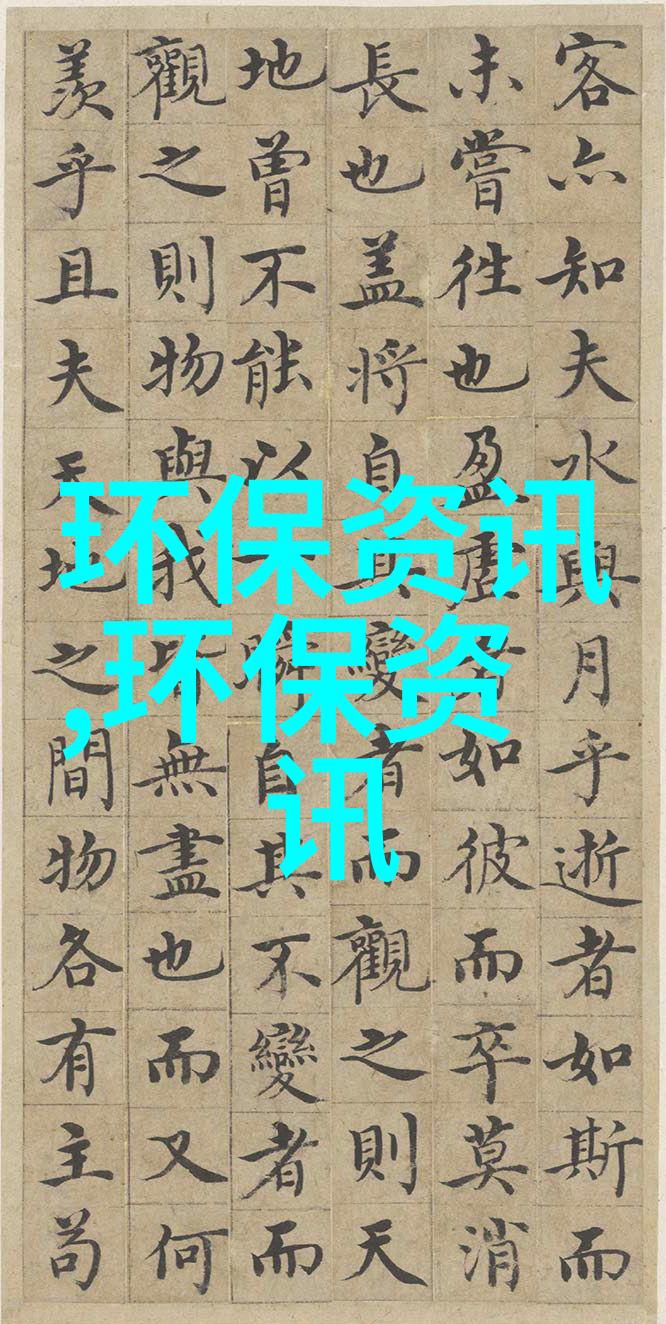 客亦知夫水與月乎逝者如斯而
未嘗徃也盈虛者如彼而卒莫消
長也盖將自其變者而觀之則天
地曾不能以一瞬自其不變者而
觀之則物與我皆無盡也而又何
羨乎且夫天地之間物各有主苟
环保资讯
,环保资
讯